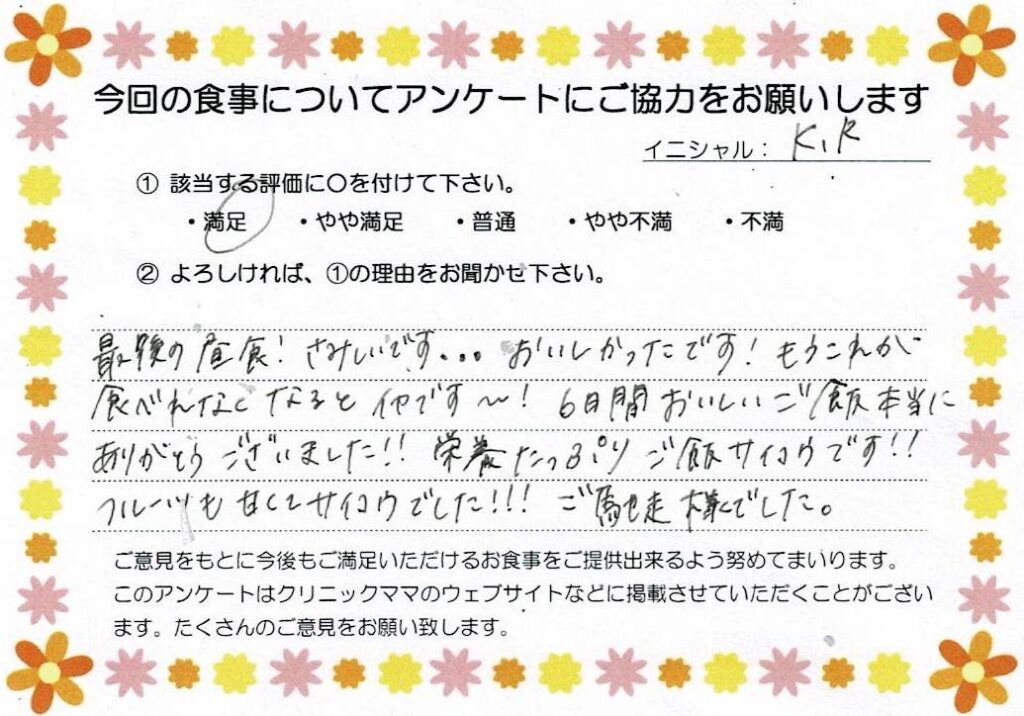 今回の食事についてアンケートにご協力をお願いします
イニシャル： K,K
① 該当する評価に〇を付けて下さい。
・満足 ・やや満足 ・普通 ・やや不満 ・不満
② よろしければ、①の理由をお聞かせ下さい。
最後の昼食！さみしいです... おいしかったです！もうこれが
食べれなくなるとイヤです〜！6日間おいしいご飯本当に
ありがとうございました!! 栄養たっぷりご飯サイコウです!!
フルーツも甘くてサイコウでした!!! ご馳走様でした。
ご意見をもとに今後もご満足いただけるお食事をご提供出来るよう努めてまいります。
このアンケートはクリニックママのウェブサイトなどに掲載させていただくことがござい
ます。たくさんのご意見をお願い致します。